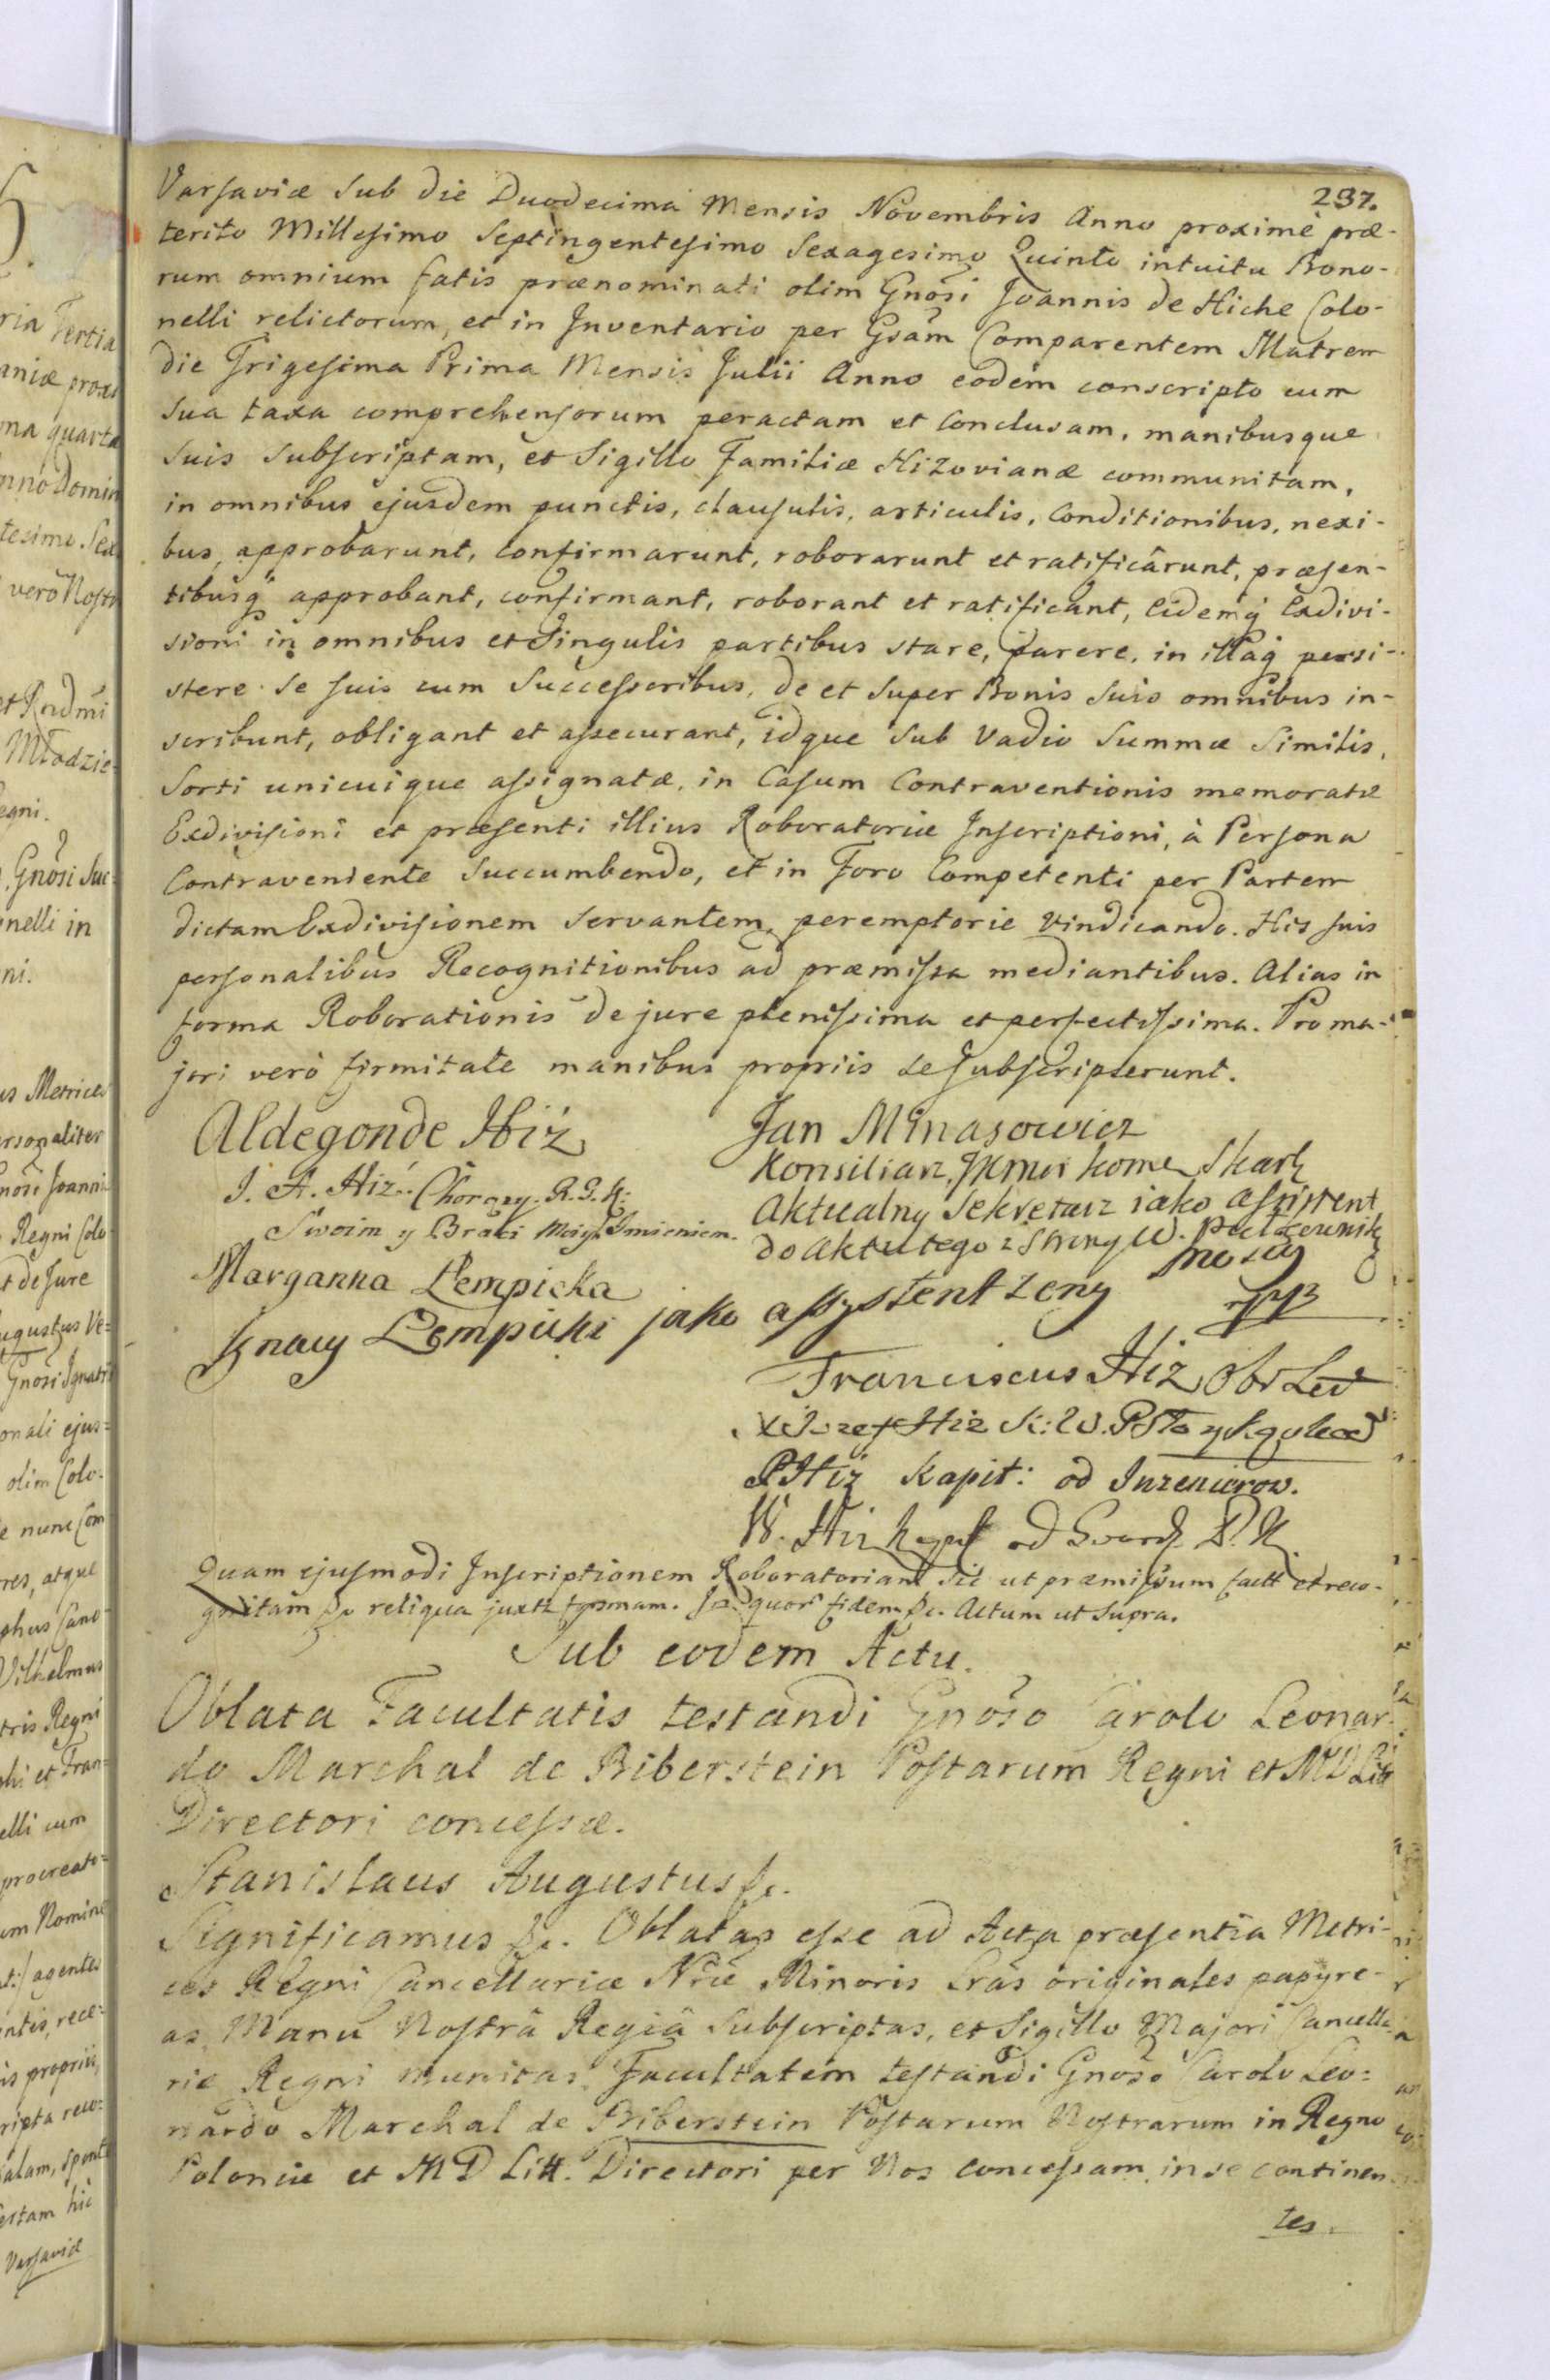 237.
Varsaviæ Sub die Duodecima Mensis Novembris Anno proxime præ-
terito Millesimo Septingentesimo Sexagesimo Quinto intuitu Bono-
rum omnium fatis prænominati olim Gnosi Joannis de Hiche Colo-
nelli relictorum, et in Inventario per Gsam Comparentem Matrem
die Trigesima Prima Mensis Julii Anno eodem conscripto cum
sua taxa comprehensorum peractam et Conclusam, manibusque
suis subscriptam, et Sigillo Familiæ Hizovianæ communitam,
in omnibus ejusdem punctis, clausulis, articulis, Conditionibus, nexi-
bus, approbarunt, confirmarunt, roborarunt et ratificârunt, præsen-
tibusq approbant, confirmant, roborant et ratificant, Eidemq Exdivi-
sioni in omnibus et Singulis partibus stare, parere, in illaq persi-
stere se suis cum Successoribus, de et super Bonis suis omnibus in-
scribunt, obligant et assecurant, idque sub Vadio Summæ Similis,
Sorti unicuique assignatæ, in Casum Contraventionis memoratæ
Exdivisioni et præsenti illius Roboratoriæ Inscriptioni, à Persona
Contraveniente Succumbendo, et in Foro Competenti per Partem
dictam Exdivisionem Servantem, peremptorie Vindicando. His suis
personalibus Recognitionibus ad præmissa mediantibus. Alias in
forma Roborationis de jure plenissima et perfectissima. Pro ma-
jori verò firmitate manibus propriis se subscripserunt.
Aldegonde Hiż
J. A. Hiż. Chorązy. R. G. K:
Swoim y Braci Moiych Imieniem.
Marganna Łempicka
Ignacy Łempicki jako assystent zeny mo
Jan Minasowicz
Konsiliarz, Skarb
Aktualny Sekretarz iako assistent
do aktu tego z Strony W.
Franciscus Hiż
X Jozef Hiż K: W.
P Hiż Kapit: od Inzenierow.
W. Hiż od Gward.
Quam ejusmodi Inscriptionem Roboratoriam sic ut præmissum fact et reco-
gnitam &c reliqua juxta formam. In quor fidem &c. Actum ut Supra.
Sub eodem Actu.
Oblata Facultatis testandi Gnoso Carolo Leonar-
do Marchal de Biberstein Postarum Regni et M D Litt
Directori concessæ.
Stanislaus Augustus &c.
Significamus &c. Oblatas esse ad Acta præsentia Metri-
ces Regni Cancellariæ Nræ Minoris Lras originales papyre-
as, Manu Nostrâ Regiâ Subscriptas, et Sigillo Majori Cancella
riæ Regni munitas, Facultatem testandi Gnoso Carolo Leo-
nardo Marchal de Biberstein Postarum Nostrarum in Regno
Poloniæ et M D Litt. Directori per Nos concessam in se continen
tes.